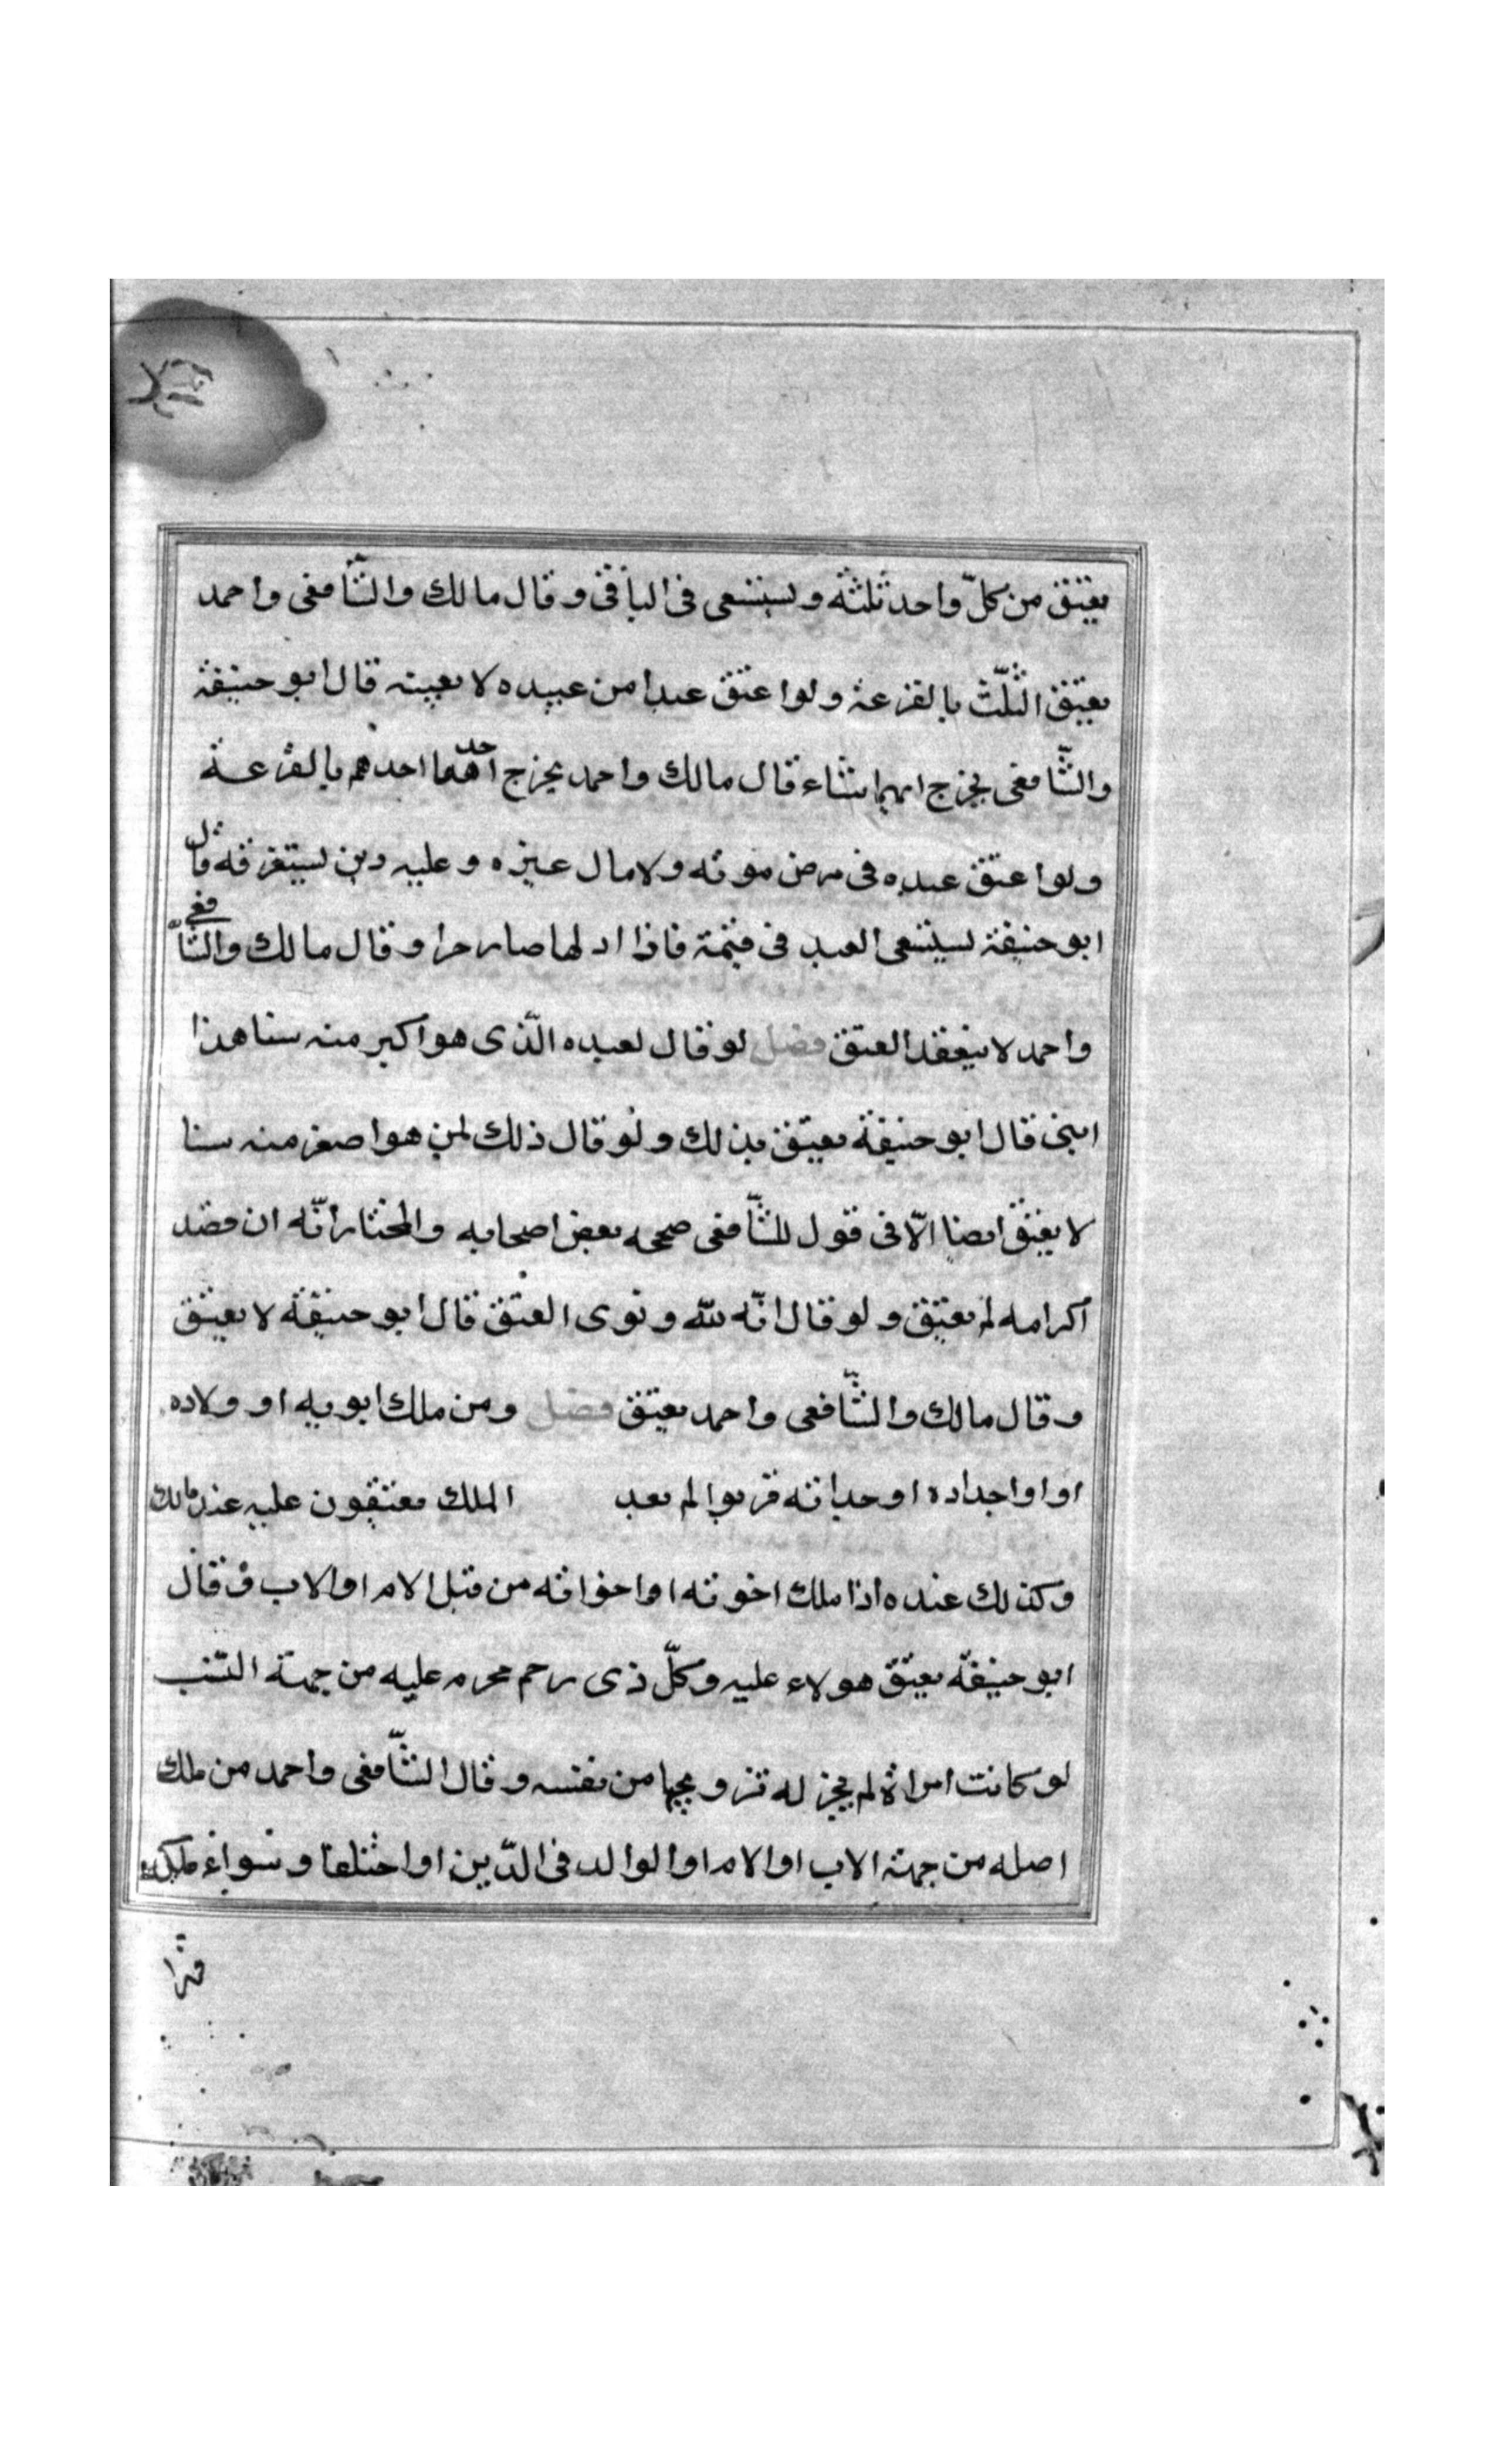 يعتق من كلّ واحد ثلثه ويستسعى فى الباقى وقال مالك والشّافعى واحمد
يعتق الثلث بالقرعة ولو اعتق عبدا من عبيده لا بعينه قال ابو حنيفة
والشّافعى يخرج ايهما شاء قال مالك واحمد يخرج احدهما احدهم بالقرعة
ولو اعتق عبده فى مرض موته ولا مال غيره وعليه دين يستغرقه قال
ابو حنيفة يستسعى العبد فى قيمة فاذا ادلها صار حرا وقال مالك والشّافعى
واحمد لا ينفقد العتق فصل لو قال لعبده الّذى هو اكبر منه سنا هذا
ابنى قال ابو حنيفة يعتق بذلك ولو قال ذلك لمن هو اصغر منه سنا
لا يعتق ايضا الّا فى قول للشّافعى صححه بعض اصحابه والمختار انّه ان قصد
اكرامه لم يعتق ولو قال انّه لله ونوى العتق قال ابو حنيفة لا يعتق
وقال مالك والشّافعى واحمد يعتق فصل ومن ملك ابويه او ولاده
او اواجداده او جداته قربوا لم بعد الملك يعتقون عليه عند مالك
وكذلك عنده اذا ملك اخوته او اخواته من قبل الام او الاب وقال
ابو حنيفة يعتق هولاء عليه وكلّ ذى رحم محرم عليه من جهة النسب
لو كانت امراة لم يجز له تزويجها من نفسه وقال الشّافعى واحمد من ملك
اصله من جهة الاب او الام او الوالد فى الدّين او اختلفا وسواء ملكه